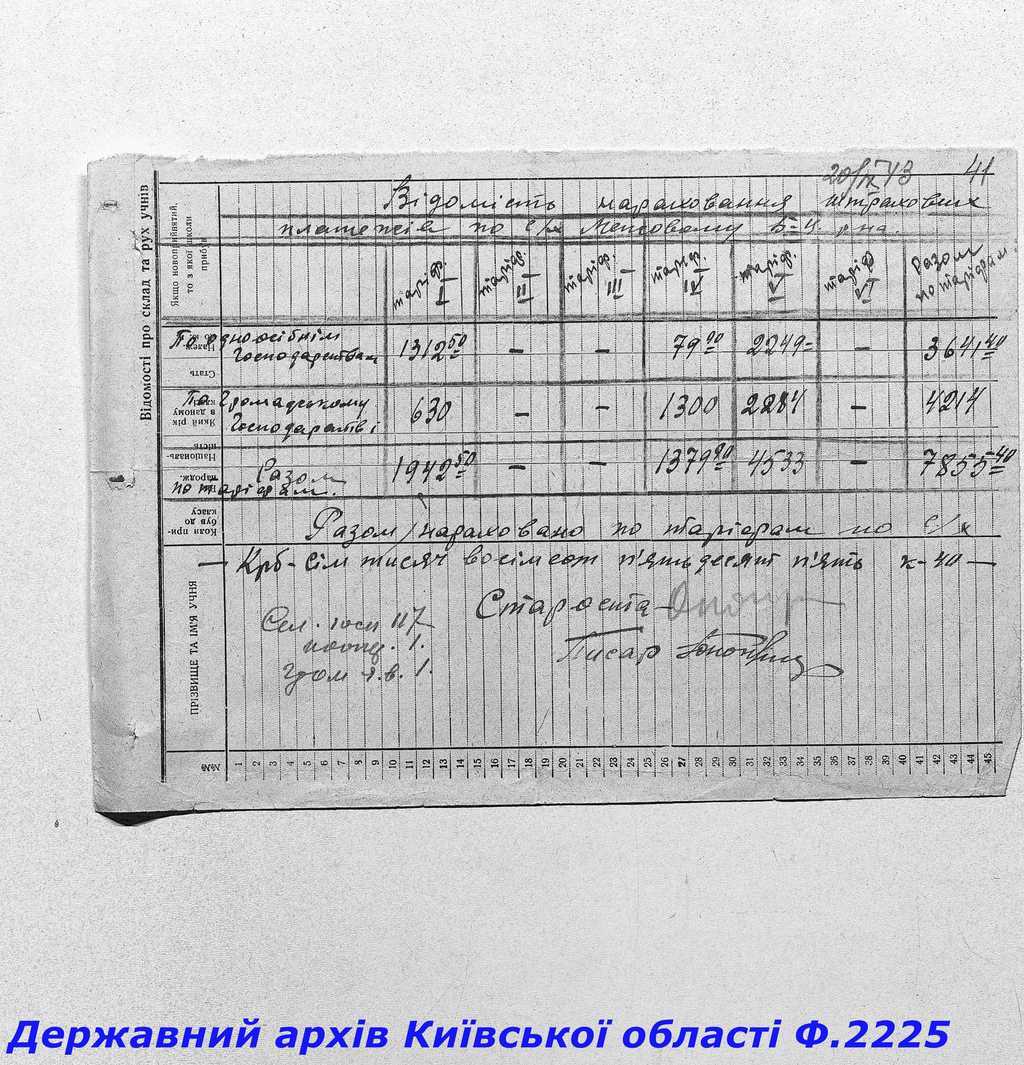 41
Відомість нараховання штрахових
платежів по с/х Межовому Б-Ц. р-на.
таріф. I
таріф. II
таріф. III
таріф. IV
таріф. V
таріф VI
Разом по таріфам.
По одноосібнім Господарствам 1312 50 — — 79 90 2249= — 3641 40
По Громадському Господарстві 630 — — 1300 2284 — 4214
Разом по таріфам. 1942 50 — — 1379 90 4533 — 7855 40
Разом нараховано по таріфам по с/х
— Крб- Сім тисяч восімсот п'ятьдесят п'ять к-40 —
Староста
Писар
Сел. госп 117
1.
гром 1.
Відомості про склад та рух учнів
Якщо новоприйнятий, то з якої школи прибув
Стать
Який рік в даному класі
Національність
Коли прибув до класу
ПРІЗВИЩЕ ТА ІМ'Я УЧНЯ
№№ 1 2 3 4 5 6 7 8 9 10 11 12 13 14 15 16 17 18 19 20 21 22 23 24 25 26 27 28 29 30 31 32 33 34 35 36 37 38 39 40 41 42 43 44 45
Державний архів Київської області Ф.2225